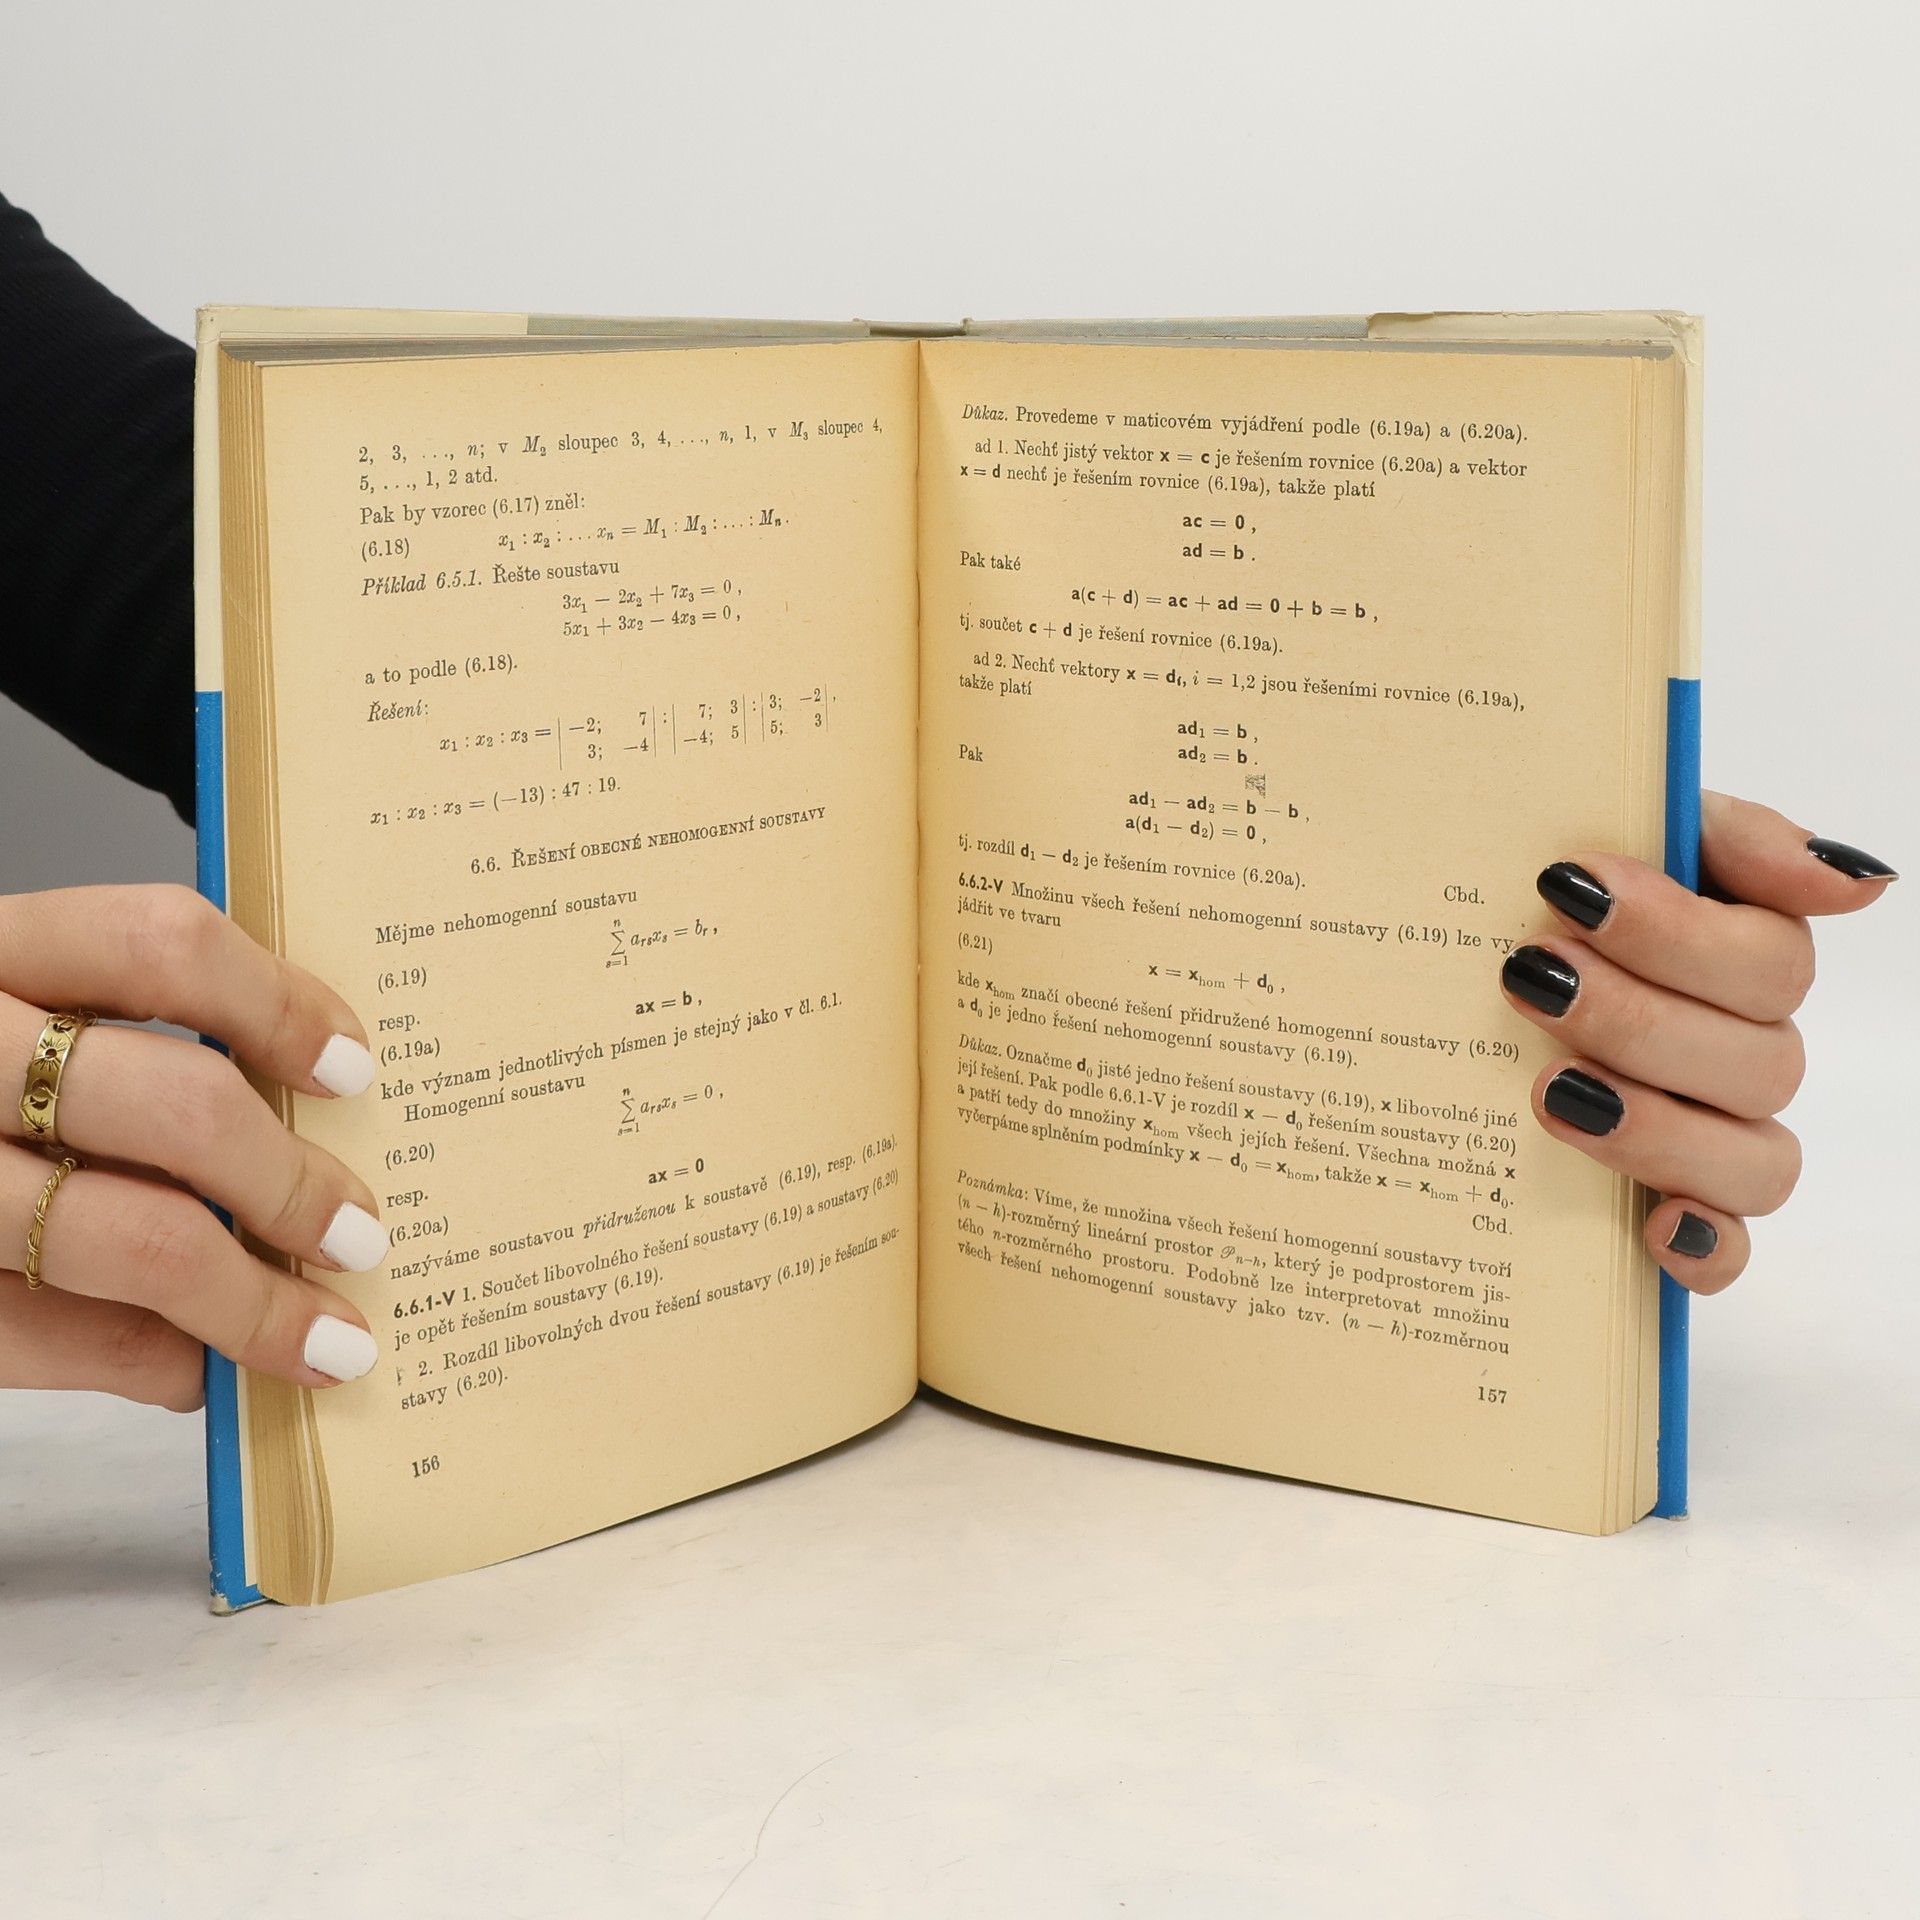 2, 3, ..., n; v M₂ sloupec 3, 4, ..., n, 1, v M₃ sloupec 4,
5, ..., 1, 2 atd.
Pak by vzorec (6.17) zněl:
(6.18) x₁ : x₂ : ... xₙ = M₁ : M₂ : ... : Mₙ.
Příklad 6.5.1. Řešte soustavu
3x₁ − 2x₂ + 7x₃ = 0 ,
5x₁ + 3x₂ − 4x₃ = 0 ,
a to podle (6.18).
Řešení:
x₁ : x₂ : x₃ = | −2; 7 | : | 7; 3 | : | 3; −2 | ,
| 3; −4 | | −4; 5 | | 5; 3 |
x₁ : x₂ : x₃ = (−13) : 47 : 19.
6.6. ŘEŠENÍ OBECNÉ NEHOMOGENNÍ SOUSTAVY
Mějme nehomogenní soustavu
(6.19) n∑s=1 aᵣₛxₛ = bᵣ ,
resp.
(6.19a) ax = b ,
kde význam jednotlivých písmen je stejný jako v čl. 6.1.
Homogenní soustavu
(6.20) n∑s=1 aᵣₛxₛ = 0 ,
resp.
(6.20a) ax = 0
nazýváme soustavou přidruženou k soustavě (6.19), resp. (6.19a).
6.6.1-V 1. Součet libovolného řešení soustavy (6.19) a soustavy (6.20)
je opět řešením soustavy (6.19).
2. Rozdíl libovolných dvou řešení soustavy (6.19) je řešením sou-
stavy (6.20).
156
Důkaz. Provedeme v maticovém vyjádření podle (6.19a) a (6.20a).
ad 1. Nechť jistý vektor x = c je řešením rovnice (6.20a) a vektor
x = d nechť je řešením rovnice (6.19a), takže platí
ac = 0 ,
ad = b .
Pak také
a(c + d) = ac + ad = 0 + b = b ,
tj. součet c + d je řešení rovnice (6.19a).
ad 2. Nechť vektory x = dᵢ, i = 1,2 jsou řešeními rovnice (6.19a),
takže platí
ad₁ = b ,
ad₂ = b .
Pak
ad₁ − ad₂ = b − b ,
a(d₁ − d₂) = 0 ,
tj. rozdíl d₁ − d₂ je řešením rovnice (6.20a).
Cbd.
6.6.2-V Množinu všech řešení nehomogenní soustavy (6.19) lze vy-
jádřit ve tvaru
(6.21) x = x_hom + d₀ ,
kde x_hom značí obecné řešení přidružené homogenní soustavy (6.20)
a d₀ je jedno řešení nehomogenní soustavy (6.19).
Důkaz. Označme d₀ jisté jedno řešení soustavy (6.19), x libovolné jiné
její řešení. Pak podle 6.6.1-V je rozdíl x − d₀ řešením soustavy (6.20)
a patří tedy do množiny x_hom všech jejích řešení. Všechna možná x
vyčerpáme splněním podmínky x − d₀ = x_hom, takže x = x_hom + d₀.
Cbd.
Poznámka: Víme, že množina všech řešení homogenní soustavy tvoří
(n − h)-rozměrný lineární prostor 𝒫ₙ₋ₕ, který je podprostorem jis-
tého n-rozměrného prostoru. Podobně lze interpretovat množinu
všech řešení nehomogenní soustavy jako tzv. (n − h)-rozměrnou
157